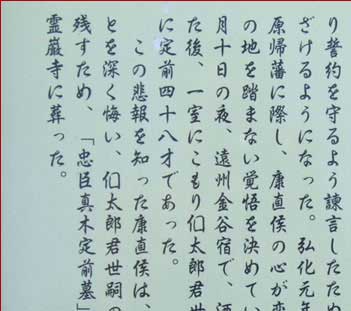 り誓約を守るよう諫言したため
ざけるようになった。弘化元年
原帰藩に際し、康直侯の心が変
の地を踏まない覚悟を決めてい
月十日の夜、遠州金谷宿で、酒
た後、一室にこもり伹太郎君世
に定前四十八才であった。
この悲報を知った康直侯は、
とを深く悔い、伹太郎君世嗣の
残すため、「忠臣真木定前墓」
霊巌寺に葬った。